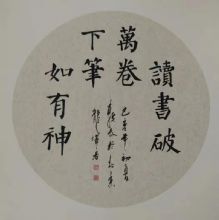 讀書破
萬卷
下筆
如有神
己亥年初夏